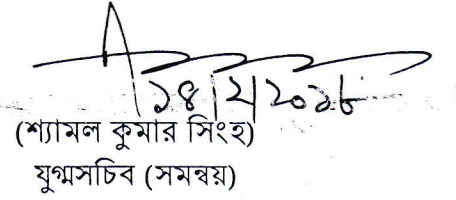 ১৪|২|২০১৮
(শ্যামল কুমার সিংহ)
যুগ্মসচিব (সমন্বয়)